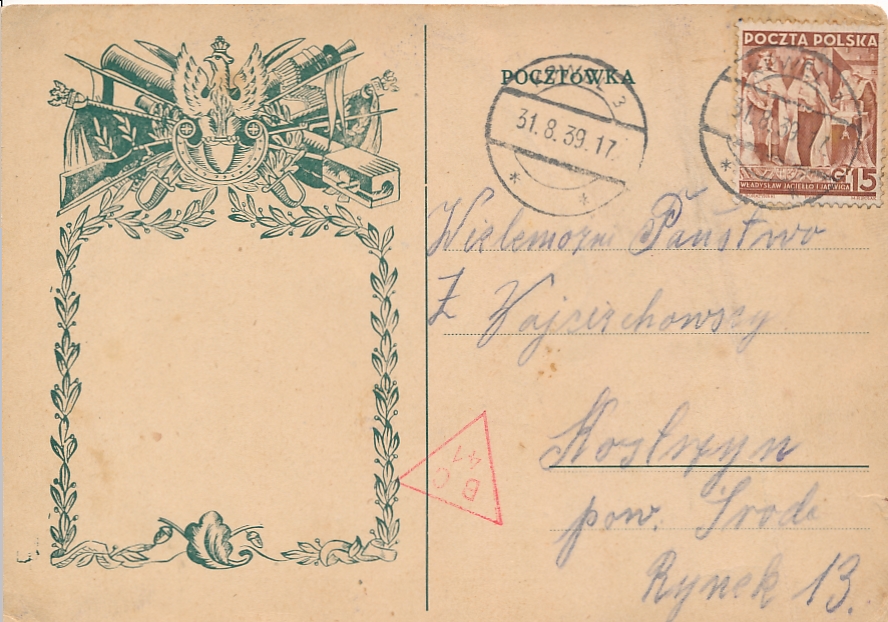 POCZTÓWKA
31.8.39.17
3
POCZTA POLSKA
31.8.39
WŁADYSŁAW JAGIEŁŁO I JADWIGA
15
Wielemożni Państwo
Z
Kostrzyn
pow. Środa
Rynek 13.
B C
41